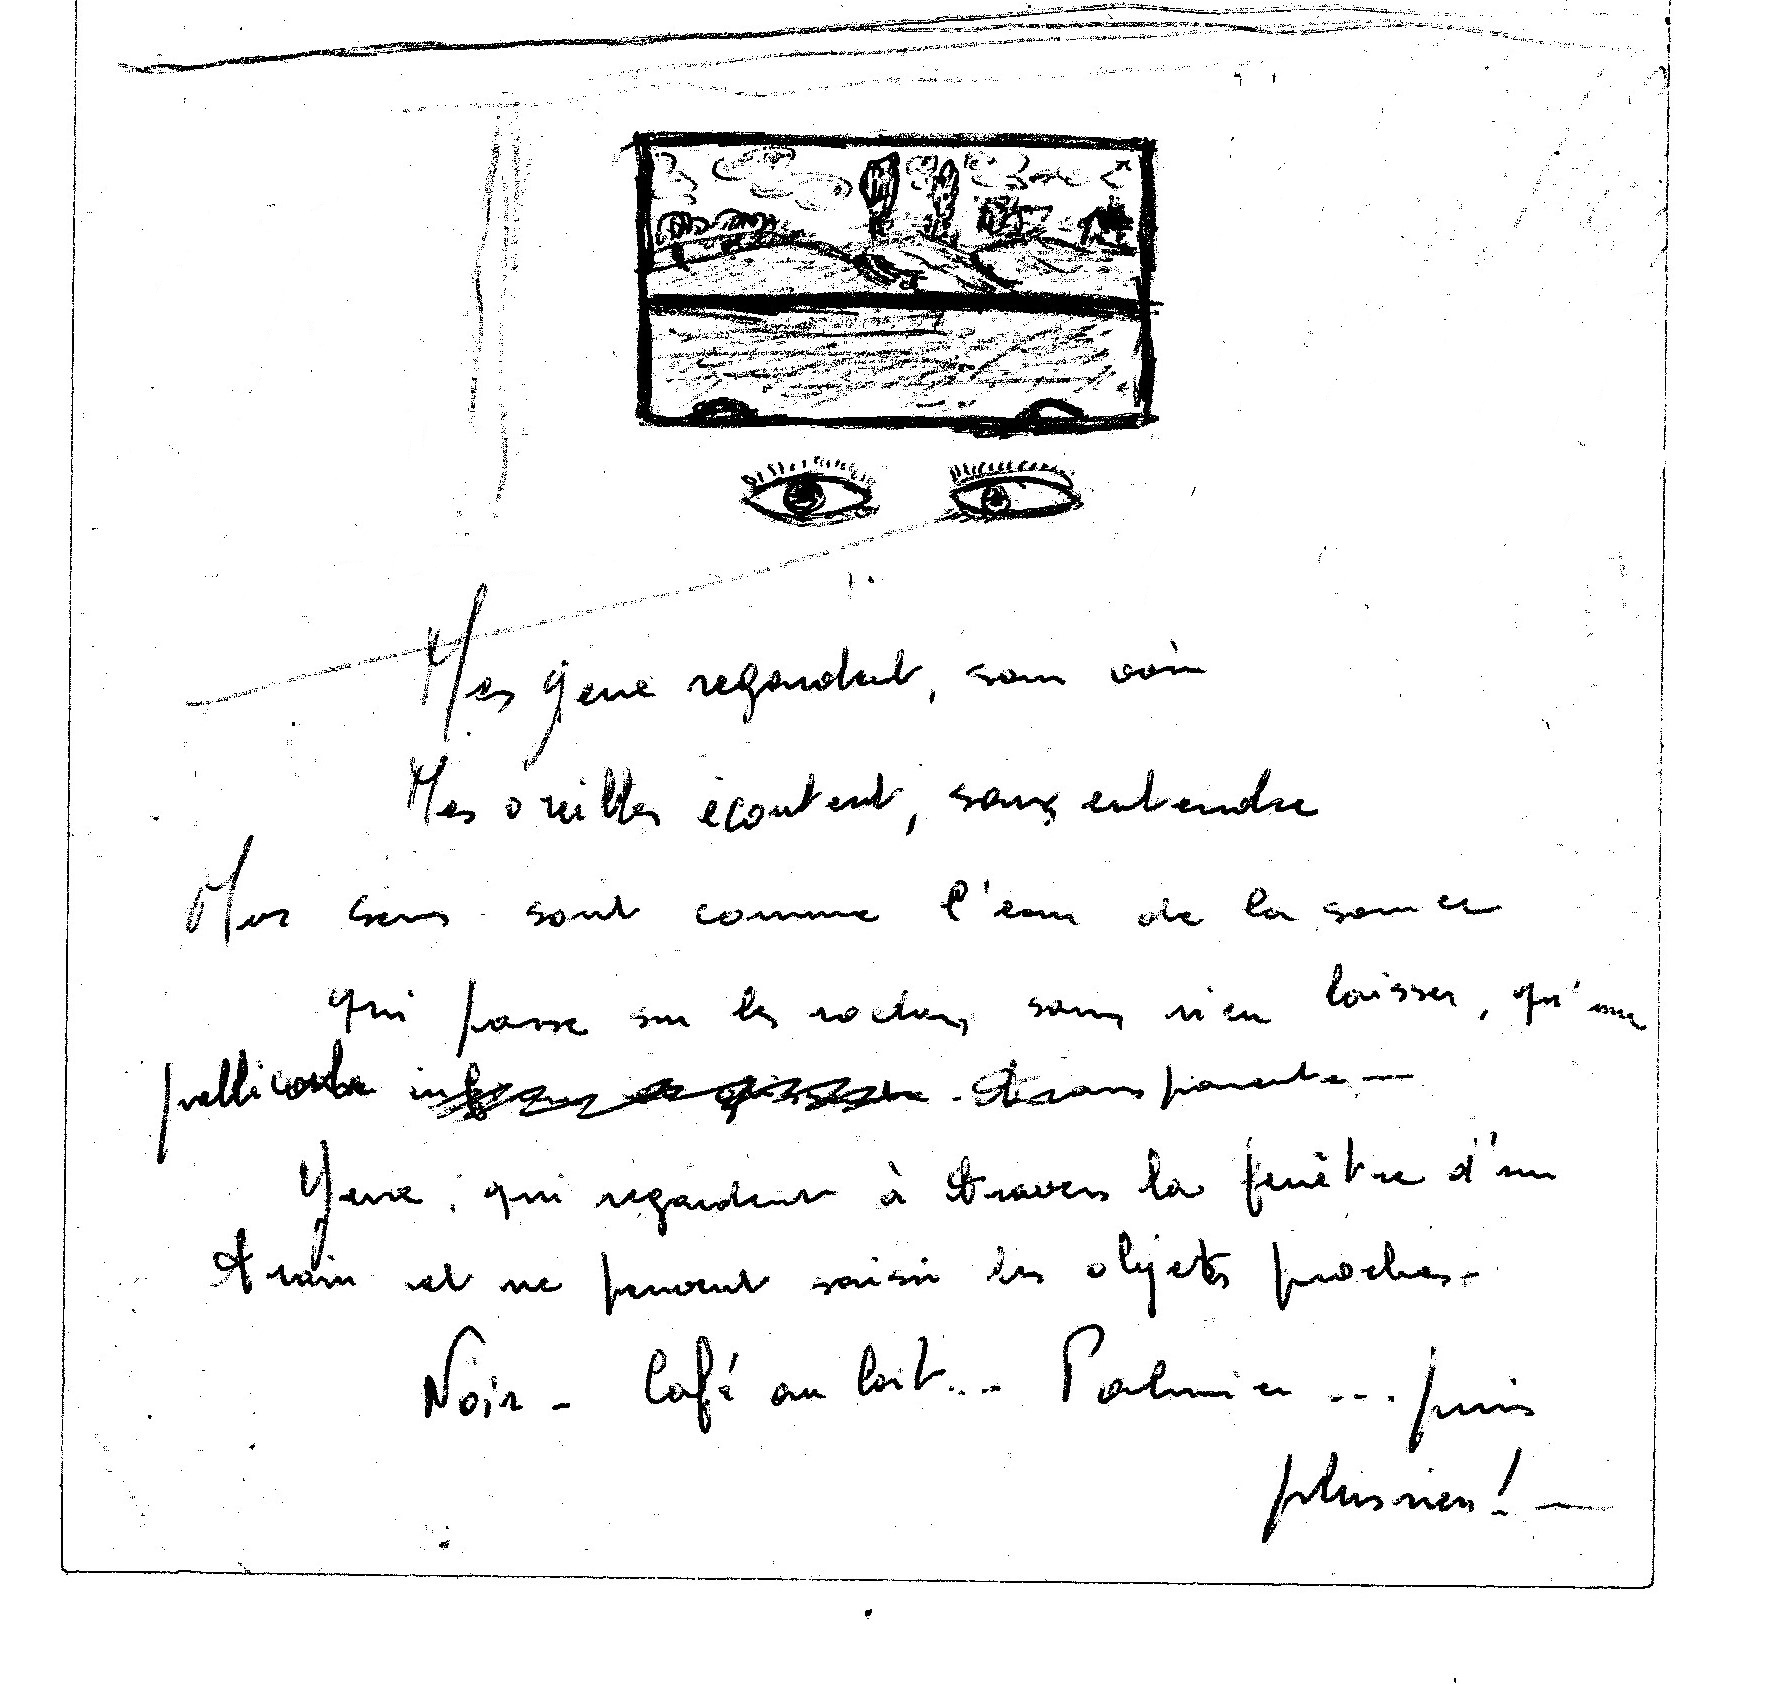 Mes yeux regardent, sans voir
Mes oreilles écoutent, sans entendre
Mes sens sont comme l'eau de la source
qui passe sur les rochers sans rien laisser, qu'une
pellicule transparente —
Yeux, qui regardent à travers la fenêtre d'un
train et ne peuvent saisir les objets proches -
Noir - Café au lait... Palmier ... puis
plus rien ! —